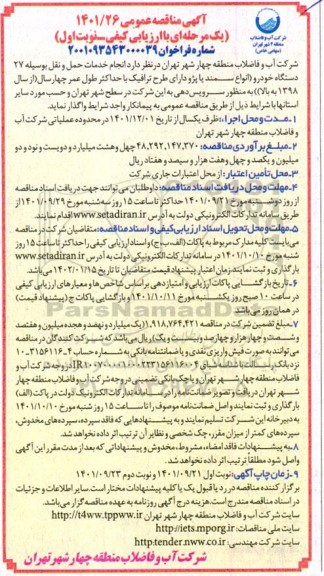 آگهی مناقصه عمومی ۱۴۰۱/۲۶
(یک مرحله ای با ارزیابی کیفی - نوبت اول)
شماره فراخوان ۲۰۰۱۰۹۵۴۳۰۰۰۰۳۹
شرکت آب و فاضلاب
منطقه ۴ شهر تهران
(سهامی خاص)
شرکت آب و فاضلاب منطقه چهار شهر تهران در نظر دارد انجام خدمات حمل و نقل بوسیله ۲۷
دستگاه خودرو (انواع سمند یا پژو دارای طرح ترافیک با حداکثر طول عمر چهار سال (از سال
۱۳۹۸ به بالا)) به منظور سرویس دهی به این شرکت در سطح شهر تهران و حسب مورد سایر
استانها با شرایط ذیل از طریق مناقصه عمومی به پیمانکار واجد شرایط واگذار نماید.
۱- مدت و محل اجرا: ظرف یکسال از تاریخ ۱۴۰۱/۱۲/۰۱ در محدوده عملیاتی شرکت آب
و فاضلاب منطقه چهار شهر تهران
۲- مبلغ برآوردی مناقصه: ۴۸,۲۹۲,۱۴۷,۳۷۰ چهل و هشت میلیارد و دویست و نود و دو
میلیون و یکصد و چهل و هفت هزار و سیصد و هفتاد ریال
۳- محل تأمین اعتبار: از محل اعتبارات جاری شرکت
۴- مهلت و محل دریافت اسناد مناقصه: داوطلبان می توانند جهت دریافت اسناد مناقصه
از روز دوشنبه مورخ ۱۴۰۱/۰۹/۲۱ حداکثر تا ساعت ۱۵ روز سه شنبه مورخ ۱۴۰۱/۰۹/۲۹ از
طریق سامانه تدارکات الکترونیکی دولت به آدرس www.setadiran.ir اقدام نمایند.
۵- مهلت و محل تحویل اسناد ارزیابی کیفی و اسناد مناقصه: متقاضیان شرکت در مناقصه
می بایست کلیه مدارک مربوط به پاکات (الف، ب، ج) و اسناد ارزیابی کیفی را حداکثر تا ساعت ۱۵ روز
شنبه مورخ ۱۴۰۱/۱۰/۱۰ در سامانه تدارکات الکترونیکی دولت به آدرس www.setadiran.ir
بارگذاری و ثبت نمایند. زمان اعتبار پیشنهاد قیمت متقاضیان تا تاریخ ۱۴۰۲/۰۱/۱۵ می باشد.
۶- تاریخ بازگشایی پاکات ارزیابی و امتیازدهی براساس شاخص ها و معیارهای ارزیابی کیفی
در ساعت ۱۰ صبح روز یکشنبه مورخ ۱۴۰۱/۱۰/۱۱ و بازگشایی پاکات ج (پیشنهاد قیمت)
در همان روز می باشد.
۷- مبلغ تضمین شرکت در مناقصه ۱,۹۱۸,۷۶۴,۴۲۱ (یک میلیارد و نهصد و هجده میلیون و هفتصد
و شصت و چهار هزار و چهارصد و بیست و یک) ریال می باشد که شرکت کنندگان در مناقصه
می توانند به صورت فیش واریز نقدی و یا ضمانتنامه بانکی به شماره حساب
نزد بانک
فاضلاب منطقه چهار شهر تهران و یا چک بانکی تضمینی در وجه شرکت آب و فاضلاب منطقه چهار
شهر تهران دریافت و تصویر ضمانت نامه را در سامانه تدارکات الکترونیک دولت در پاکت (الف)
بارگذاری و ثبت نمایند و اصل ضمانت نامه موصوف را تا ساعت ۱۵ روز شنبه مورخ ۱۴۰۱/۱۰/۱۰
به دبیرخانه این شرکت تسلیم نمایند و به پیشنهادهایی که فاقد سپرده، سپرده های مخدوش،
سپرده های کمتر از میزان مقرر، چک شخصی و نظایر آن ترتیب اثر داده نخواهد شد.
۸- به پیشنهادات فاقد امضاء، مشروط، مخدوش و پیشنهاداتی که بعد از مدت مقرر این آگهی
واصل شود مطلقاً ترتیب اثر داده نخواهد شد.
۹- زمان چاپ آگهی: نوبت اول ۱۴۰۱/۰۹/۲۱ و نوبت دوم ۱۴۰۱/۰۹/۲۳
برگزار کننده مناقصه در رد یا قبول یک یا کلیه پیشنهادات مختار است. سایر اطلاعات و جزئیات
در اسناد مناقصه مندرج است. هزینه درج آگهی روزنامه به عهده مناقصه گزار می باشد.
سایت شرکت آب و فاضلاب منطقه چهار شهر تهران http://t4ww.tppww.ir
سایت ملی مناقصات: http://iets.mporg.ir
سایت شرکت مهندسی: http:tender.nww.co.ir
شرکت آب و فاضلاب منطقه چهار شهر تهران
ParsNamadData